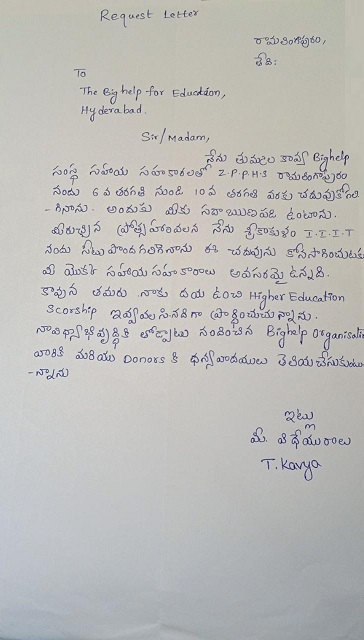 Request Letter
రామలింగాపురం,
తేది:
To
The Bighelp for Education,
Hyderabad.
Sir/Madam,
నేను తుమ్మల కావ్య Bighelp
సంస్థ సహాయ సహకారాలతో Z.P.P.H.S రామలింగాపురం
నందు 6 వ తరగతి నుండి 10 వ తరగతి వరకు చదువుకోగలి
-గినాను. అందుకు మీకు సదా ఋణపడి ఉంటాను.
మీరిచ్చిన ప్రోత్సాహం వలన నేను శ్రీకాకుళం I.I.I.T
నందు సీటు పొందగలిగినాను ఈ చదువును కొనసాగించుటకు
మీ యొక్క సహాయ సహకారాలు అవసరమై ఉన్నది.
కావున తమరు నాకు దయ ఉంచి Higher Education
Scorship ఇవ్వవలసినదిగా ప్రార్థించుచున్నాను.
నా విద్యాభివృద్ధికి తోడ్పాటు నందించిన Bighelp Organisati
వారికి మరియు Donors కి ధన్యవాదములు తెలియచేసుకుంటు
-న్నాను
ఇట్లు
మీ విధేయురాలు
T. Kavya